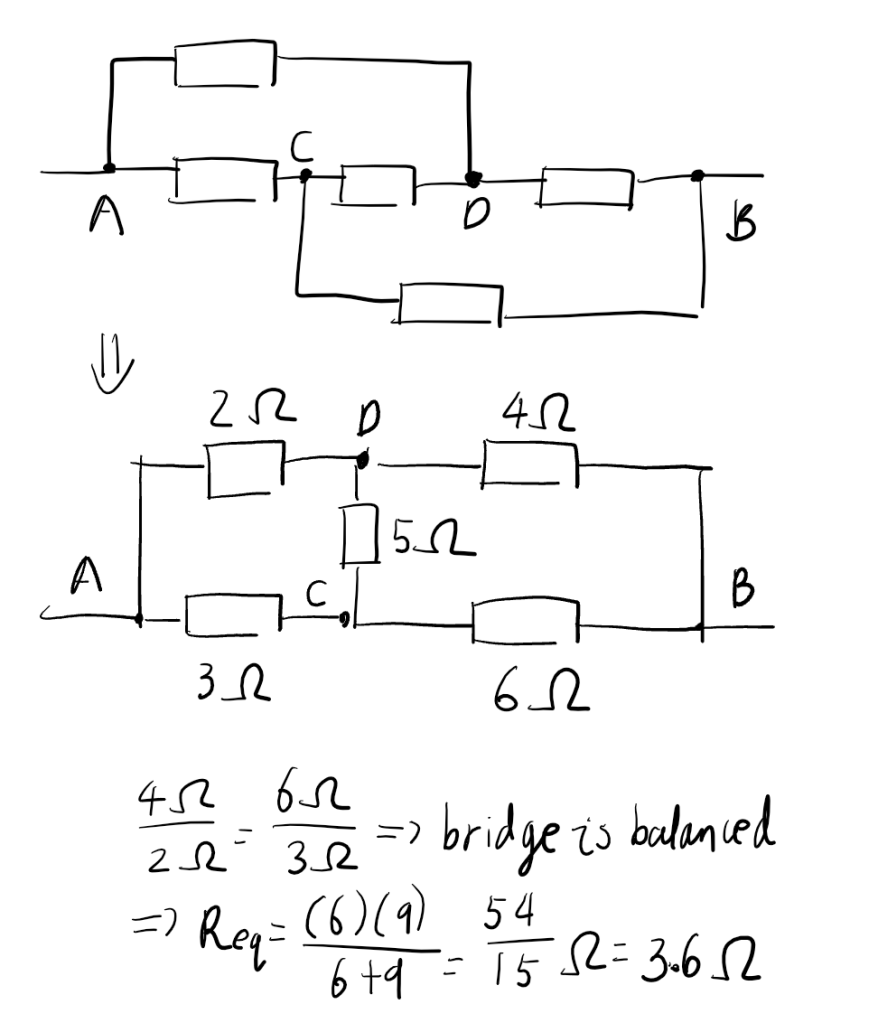 C
A D B
⇓
2Ω D 4Ω
5Ω
A C B
3Ω 6Ω
4Ω/2Ω = 6Ω/3Ω => bridge is balanced
=> Req = (6)(9)/6+9 = 54/15 Ω = 3.6 Ω